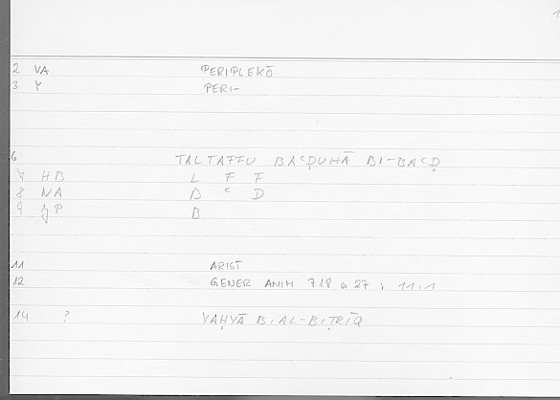 2 VA PERIPLEKŌ
3 Y PERI-
6 TALTAFFU BAʿḌUHĀ BI-BAʿḌ
7 HB L F F
8 NA B ʿ D
9 P B
11 ARIST
12 GENER ANIM 718 a 27 : 11.1
14 ? YAḤYĀ B. AL-BIṬRĪQ